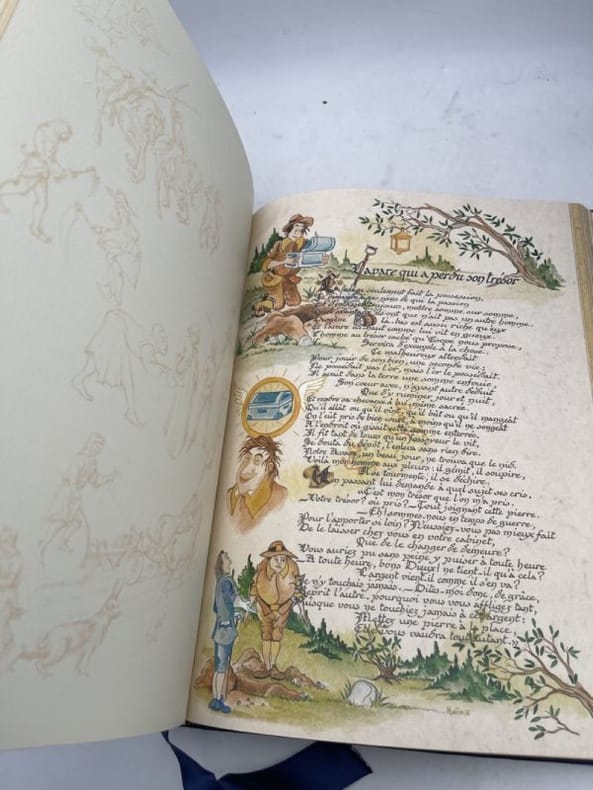 L'avare qui a perdu son trésor
L'usage seulement fait la possession.
Je demande à ces gens de qui la passion
Est d'entasser toujours, mettre somme sur somme,
Quel avantage ils ont que n'ait pas un autre homme.
Diogène là-bas est aussi riche qu'eux
Et l'avare ici-haut comme lui vit en gueux.
L'homme au trésor caché qu'Esope nous propose,
Servira d'exemple à la chose.
Ce malheureux attendait
Pour jouir de son bien, une seconde vie;
Ne possédait pas l'or, mais l'or le possédait.
Il avait dans la terre une somme enfouie,
Son cœur avec, n'ayant autre déduit
Que d'y ruminer jour et nuit,
Et rendre sa chevance à lui-même sacrée.
Qu'il allât ou qu'il vînt, qu'il bût ou qu'il mangeât
On l'eût pris de bien court, à moins qu'il ne songeât
A l'endroit où gisait cette somme enterrée.
Il fit tant de tours qu'un fossoyeur le vit,
Se douta du dépôt, l'enleva sans rien dire.
Notre Avare, un beau jour, ne trouva que le nid.
Voilà mon homme aux pleurs; il gémit, il soupire,
Il se tourmente, il se déchire.
Un passant lui demande à quel sujet ses cris.
_C'est mon trésor que l'on m'a pris.
_Votre trésor? où pris?_Tout joignant cette pierre.
_Eh! sommes-nous en temps de guerre,
Pour l'apporter si loin? N'eussiez-vous pas mieux fait
De le laisser chez vous en votre cabinet,
Que de le changer de demeure?
Vous auriez pu sans peine y puiser à toute heure.
_A toute heure, bons Dieux! ne tient-il qu'à cela?
L'argent vient-il comme il s'en va?
Je n'y touchais jamais._Dites-moi donc, de grâce,
Reprit l'autre, pourquoi vous vous affligez tant,
Puisque vous ne touchiez jamais à cet argent:
Mettez une pierre à la place,
Elle vous vaudra tout autant.